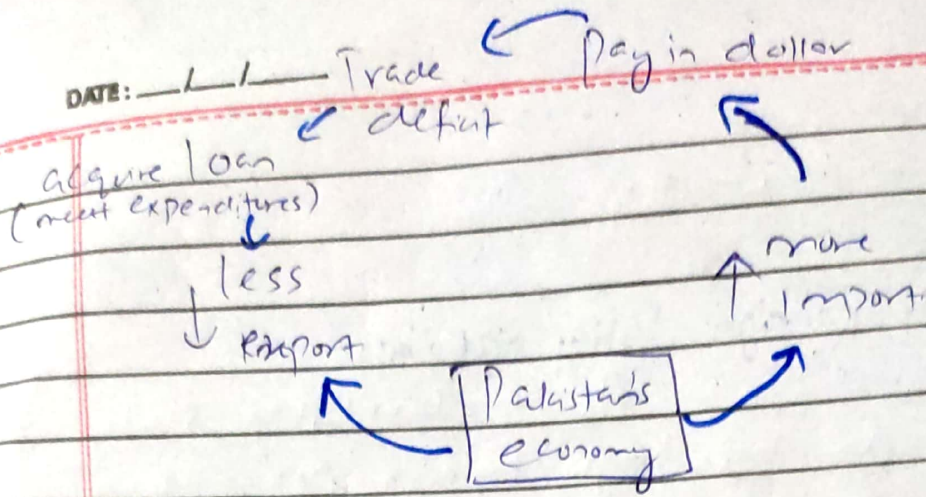 DATE: __/__/____ Trade
Pay in dollar
deficit
acquire loan
(meet expenditures)
less
export
more
import
Pakistan's
economy